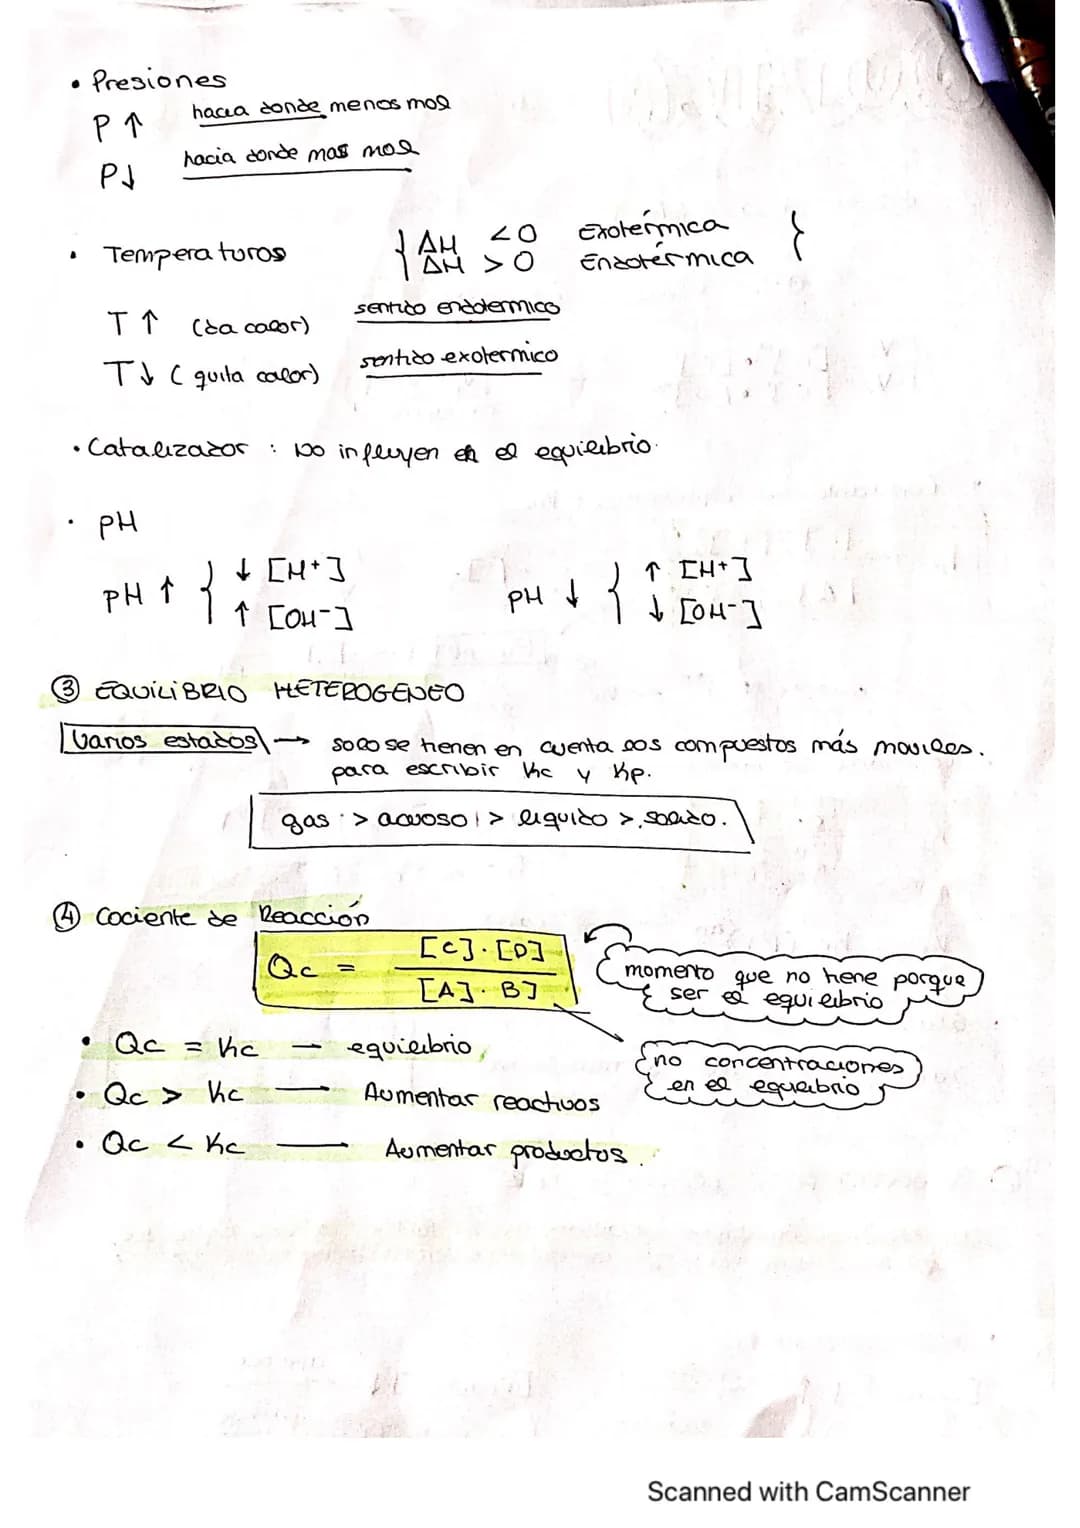 • Presiones
P ↑ hacia donde menos mol
P↓ hacia donde mas mol
• Temperaturas { ΔH < 0 Exotérmica }
ΔH > 0 Endotérmica
T ↑ (da calor) sentido endotermico
T↓ (quita calor) sentido exotermico
• Catalizador : No influyen en el equilibrio.
• pH
pH ↑ { ↓ [H+] pH ↓ { ↑ [H+]
↑ [OH-] ↓ [OH-]
③ EQUILIBRIO HETEROGENEO
Varios estados → solo se tienen en cuenta los compuestos más moviles.
para escribir Kc y Kp.
gas > acuoso > liquido > solido.
④ Cociente de Reacción
Qc = [C]·[D]
[A]·B]
momento que no tiene porque
ser el equilibrio
• Qc = Kc — equilibrio
no concentraciones
en el equilibrio
• Qc > Kc — Aumentar reactivos
• Qc < Kc — Aumentar productos.
Scanned with CamScanner